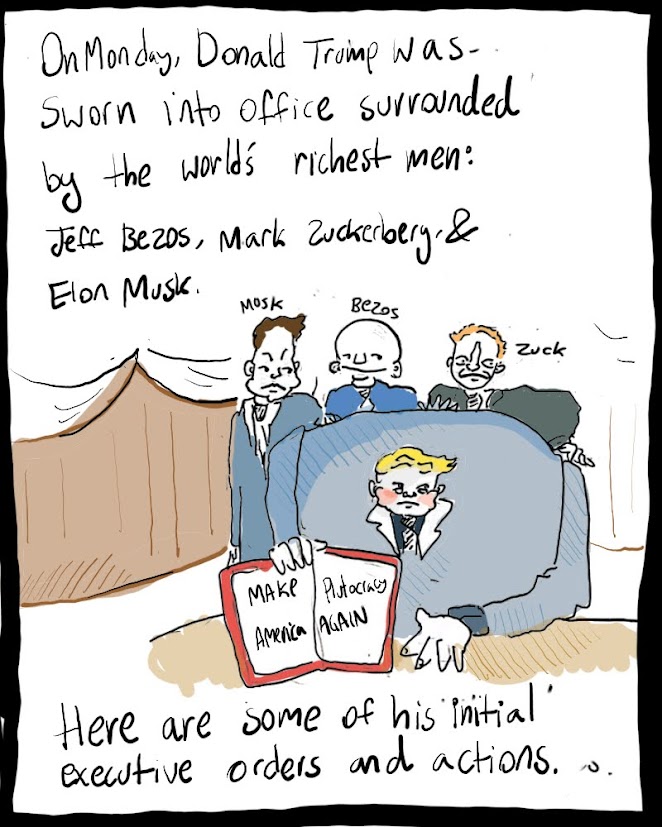 On Monday, Donald Trump was
sworn into office surrounded
by the world's richest men:
Jeff Bezos, Mark Zuckerberg, &
Elon Musk.
Mosk
Bezos
Zuck
MAKE Plutocracy
America AGAIN
Here are some of his initial
executive orders and actions.